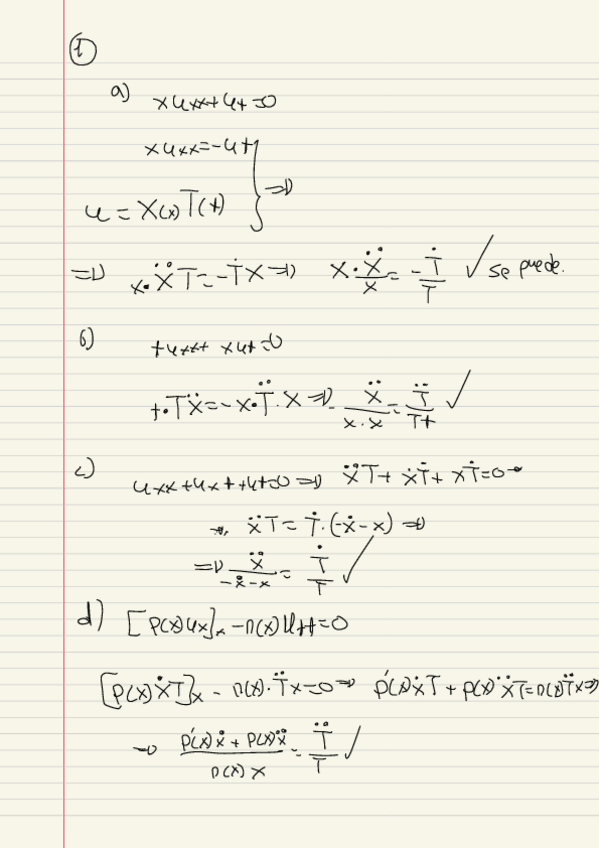 ①
a) x uxx + ut = 0
x uxx = -ut
u = X(x) T(t) } ⇒
⇒ x · Ẍ T = -Ṫ X ⇒ x · Ẍ/X = - Ṫ/T ✓ se puede.
b) t uxx + x ut = 0
t · T Ẍ = - x · T̈ · X ⇒ - Ẍ/(x · X) = T̈/(T t) ✓
c) uxx + uxt + ut = 0 ⇒ Ẍ T + Ẋ Ṫ + X Ṫ = 0 →
→ Ẍ T = Ṫ · (-Ẋ - X) ⇒
⇒ Ẍ/(-Ẋ - X) = Ṫ/T ✓
d) [P(x) ux]x - r(x) utt = 0
[p(x) Ẋ T]x - r(x) · T̈ X = 0 ⇒ p'(x) Ẋ T + p(x) Ẍ T = r(x) T̈ X ⇒
→ (p'(x) Ẋ + p(x) Ẍ)/(r(x) X) = T̈/T ✓